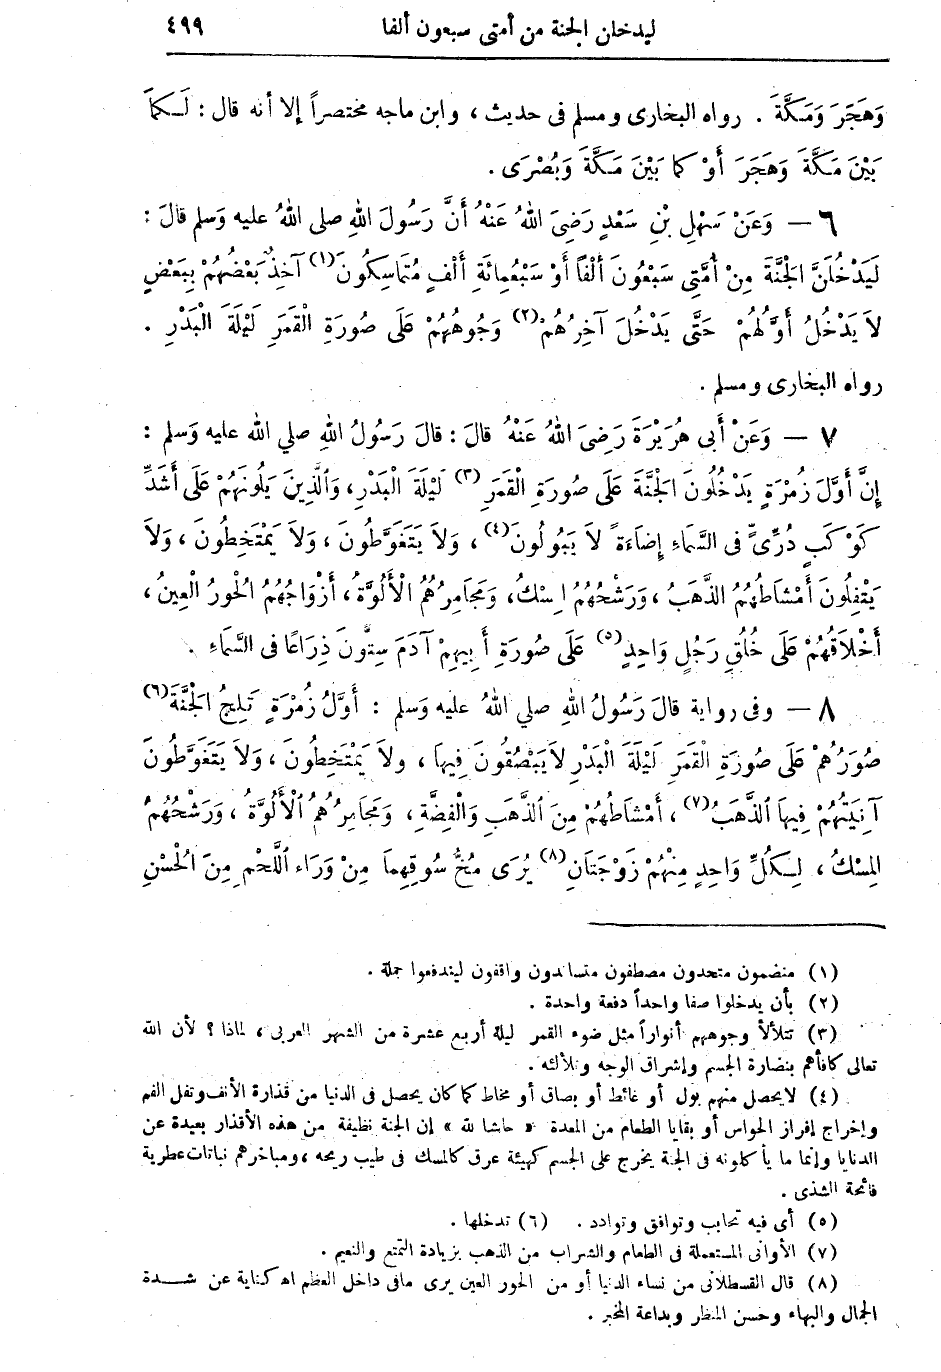 ليدخان الجنة من أمتى سبعون ألفا ٤٩٩
وَهَجَرَ وَمَكَّةَ . رواه البخارى ومسلم فى حديث ، وابن ماجه مختصراً إلا أنه قال : لَكَمَا
بَيْنَ مَكَّةَ وَهَجَرَ أَوْ كَمَا بَيْنَ مَكَّةَ وَبُصْرَى .
٦ — وَعَنْ سَهْلِ بْنِ سَعْدٍ رَضِىَ اللهُ عَنْهُ أَنَّ رَسُولَ اللهِ صلى اللهُ عليه وَسلم قالَ :
لَيَدْخُلَنَّ الْجَنَّةَ مِنْ أُمَّتِى سَبْعُونَ أَلْفًا أَوْ سَبْعُمِائَةِ أَلْفٍ مُتَمَاسِكُونَ (١) آخِذٌ بَعْضُهُمْ بِبَعْضٍ
لاَ يَدْخُلُ أَوَّلُهُمْ حَتَّى يَدْخُلَ آخِرُهُمْ (٢) وَجُوهُهُمْ عَلَى صُورَةِ الْقَمَرِ لَيْلَةَ الْبَدْرِ .
رواه البخارى ومسلم .
٧ — وَعَنْ أَبِى هُرَيْرَةَ رَضِىَ اللهُ عَنْهُ قالَ : قالَ رَسُولُ اللهِ صلي الله عليه وَسلم :
إِنَّ أَوَّلَ زُمْرَةٍ يَدْخُلُونَ الْجَنَّةَ عَلَى صُورَةِ الْقَمَرِ (٣) لَيْلَةَ الْبَدْرِ ، وَالَّذِينَ يَلُونَهُمْ عَلَى أَشَدِّ
كَوْكَبٍ دُرِّىٍّ فى السَّمَاءِ إِضَاءَةً لاَ يَبُولُونَ (٤) ، وَلاَ يَتَغَوَّطُونَ ، وَلاَ يَمْتَخِطُونَ ، وَلاَ
يَتْفِلُونَ أَمْشَاطُهُمُ الذَّهَبُ ، وَرَشْحُهُمُ اِسْكُ ، وَمَجَامِرُهُمُ الْأَلُوَّةُ ، أَزْوَاجُهُمُ الْحُورُ الْعِينُ ،
أَخْلاَقُهُمْ عَلَى خُلُقِ رَجُلٍ وَاحِدٍ (٥) عَلَى صُورَةِ أَبِيهِمْ آدَمَ سِتُّونَ ذِرَاعًا فى السَّمَاءِ .
٨ — وفى رواية قالَ رَسُولُ اللهِ صلي اللهُ عليه وَسلم : أَوَّلُ زُمْرَةٍ تَلِجُ الْجَنَّةَ (٦)
صُوَرُهُمْ عَلَى صُورَةِ الْقَمَرِ لَيْلَةَ الْبَدْرِ لاَيَبْصُقُونَ فِيهَا ، ولاَ يَمْتَخِطُونَ ، وَلاَ يَتَغَوَّطُونَ
آنِيَتُهُمْ فِيهَا الذَّهَبُ (٧) ، أَمْشَاطُهُمْ مِنَ الذَّهَبِ وَالْفِضَّةِ ، وَمَجَامِرُهُمُ الْأَلُوَّةُ ، وَرَشْحُهُمُ
الِمسْكُ ، لِكُلِّ وَاحِدٍ مِنْهُمْ زَوْجَتَانِ (٨) يُرَى مُخُّ سُوقِهِمَا مِنْ وَرَاءِ اللَّحْمِ مِنَ الْحُسْنِ
(١) منضمون متحدون مصطفون متساندون واقفون ليندفعوا جملة .
(٢) بأن يدخلوا صفا واحداً دفعة واحدة .
(٣) تتلألأ وجوههم أنواراً مثل ضوء القمر ليلة أربع عشرة من الشهر العربى ، لماذا ؟ لأن الله
تعالى كافأهم بنضارة الجسم وإشراق الوجه وتلألئه .
(٤) لايحصل منهم بول أو غائط أو بصاق أو مخاط كما كان يحصل فى الدنيا من قذارة الأنف وتفل الفم
وإخراج إفراز الحواس أو بقايا الطعام من المعدة « حاشا لله » إن الجنة نظيفة من هذه الأقذار بعيدة عن
الدنايا وإنما ما يأكلونه فى الجنة يخرج على الجسم كهيئة عرق كالمسك فى طيب ريحه ، ومباخرهم نباتات عطرية
فائحة الشذى .
(٥) أى فيه تحابب وتوافق وتوادد . (٦) تدخلها .
(٧) الأوانى المستعملة فى الطعام والشراب من الذهب بزيادة التمتع والنعيم .
(٨) قال القسطلانى من نساء الدنيا أو من الحور العين يرى مافى داخل العظم اه كناية عن شدة
الجمال والبهاء وحسن المنظر وبداعة المخبر .